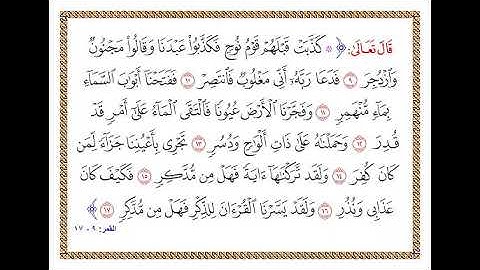 قَالَ تَعَالَىٰ: ﴿ ۞ كَذَّبَتْ قَبْلَهُمْ قَوْمُ نُوحٍ فَكَذَّبُوا۟ عَبْدَنَا وَقَالُوا۟ مَجْنُونٌ
وَٱزْدُجِرَ ٩ فَدَعَا رَبَّهُۥٓ أَنِّى مَغْلُوبٌ فَٱنتَصِرْ ١٠ فَفَتَحْنَآ أَبْوَٰبَ ٱلسَّمَآءِ
بِمَآءٍ مُّنْهَمِرٍ ١١ وَفَجَّرْنَا ٱلْأَرْضَ عُيُونًا فَٱلْتَقَى ٱلْمَآءُ عَلَىٰٓ أَمْرٍ قَدْ
قُدِرَ ١٢ وَحَمَلْنَٰهُ عَلَىٰ ذَاتِ أَلْوَٰحٍ وَدُسُرٍ ١٣ تَجْرِى بِأَعْيُنِنَا جَزَآءً لِّمَن
كَانَ كُفِرَ ١٤ وَلَقَد تَّرَكْنَٰهَآ ءَايَةً فَهَلْ مِن مُّدَّكِرٍ ١٥ فَكَيْفَ كَانَ
عَذَابِى وَنُذُرِ ١٦ وَلَقَدْ يَسَّرْنَا ٱلْقُرْءَانَ لِلذِّكْرِ فَهَلْ مِن مُّدَّكِرٍ ١٧ ﴾
القمر: ٩ - ١٧